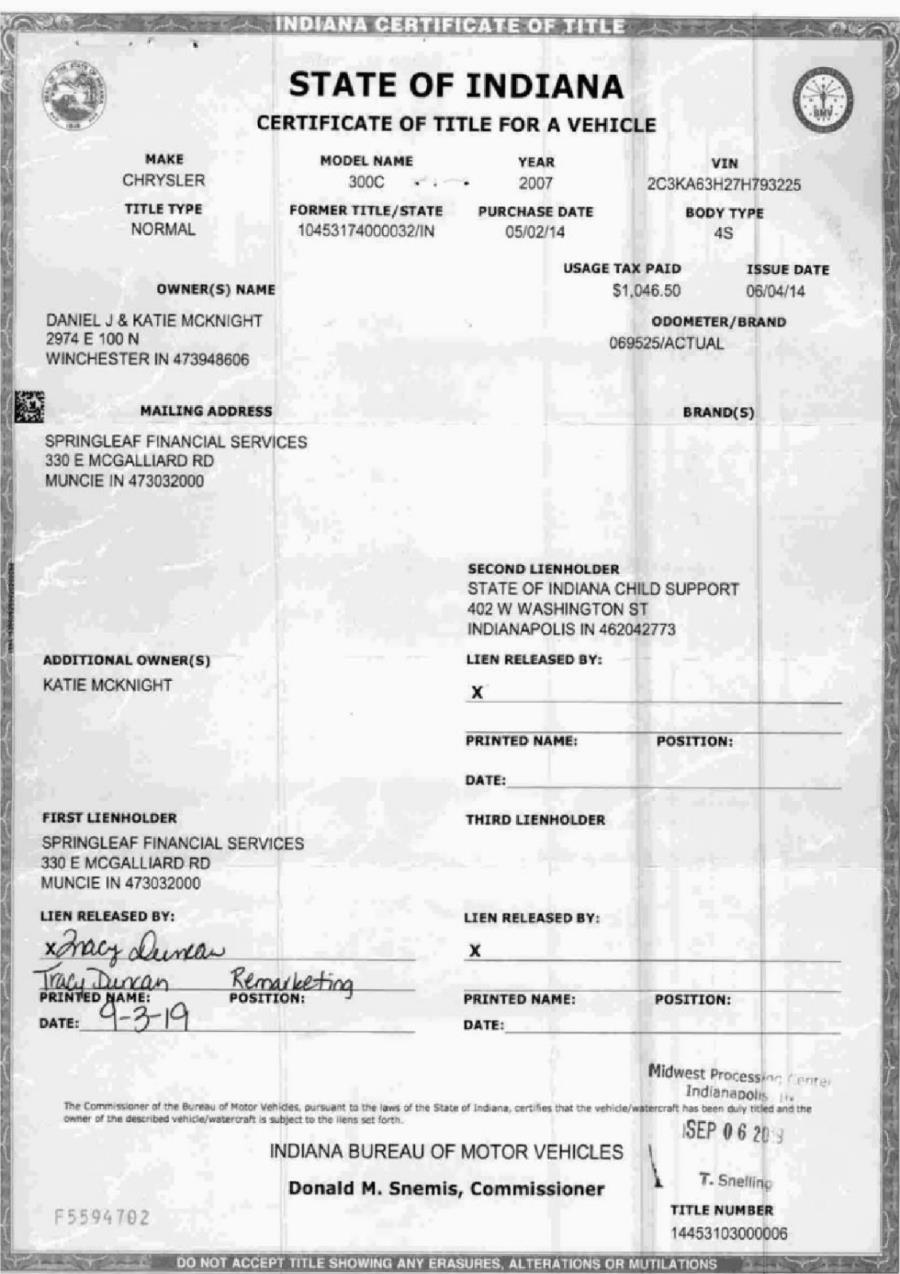 INDIANA CERTIFICATE OF TITLE
STATE OF INDIANA
CERTIFICATE OF TITLE FOR A VEHICLE
MAKE MODEL NAME YEAR VIN
CHRYSLER 300C 2007 2C3KA63H27H793225
TITLE TYPE FORMER TITLE/STATE PURCHASE DATE BODY TYPE
NORMAL 10453174000032/IN 05/02/14 4S
USAGE TAX PAID ISSUE DATE
$1,046.50 06/04/14
OWNER(S) NAME
DANIEL J & KATIE MCKNIGHT
2974 E 100 N
WINCHESTER IN 473948606
ODOMETER/BRAND
069525/ACTUAL
MAILING ADDRESS
SPRINGLEAF FINANCIAL SERVICES
330 E MCGALLIARD RD
MUNCIE IN 473032000
BRAND(S)
SECOND LIENHOLDER
STATE OF INDIANA CHILD SUPPORT
402 W WASHINGTON ST
INDIANAPOLIS IN 462042773
ADDITIONAL OWNER(S)
KATIE MCKNIGHT
LIEN RELEASED BY:
X
PRINTED NAME: POSITION:
DATE:
FIRST LIENHOLDER
SPRINGLEAF FINANCIAL SERVICES
330 E MCGALLIARD RD
MUNCIE IN 473032000
LIEN RELEASED BY:
x Tracy Duncan
Tracy Duncan Remarketing
PRINTED NAME: POSITION:
DATE: 9-3-19
THIRD LIENHOLDER
LIEN RELEASED BY:
X
PRINTED NAME: POSITION:
DATE:
Midwest Processing Center
Indianapolis
SEP 06
T. Snelling
The Commissioner of the Bureau of Motor Vehicles, pursuant to the laws of the State of Indiana, certifies that the vehicle/watercraft has been duly titled and the
owner of the described vehicle/watercraft is subject to the liens set forth.
INDIANA BUREAU OF MOTOR VEHICLES
Donald M. Snemis, Commissioner
F5594702
TITLE NUMBER
14453103000006
DO NOT ACCEPT TITLE SHOWING ANY ERASURES, ALTERATIONS OR MUTILATIONS